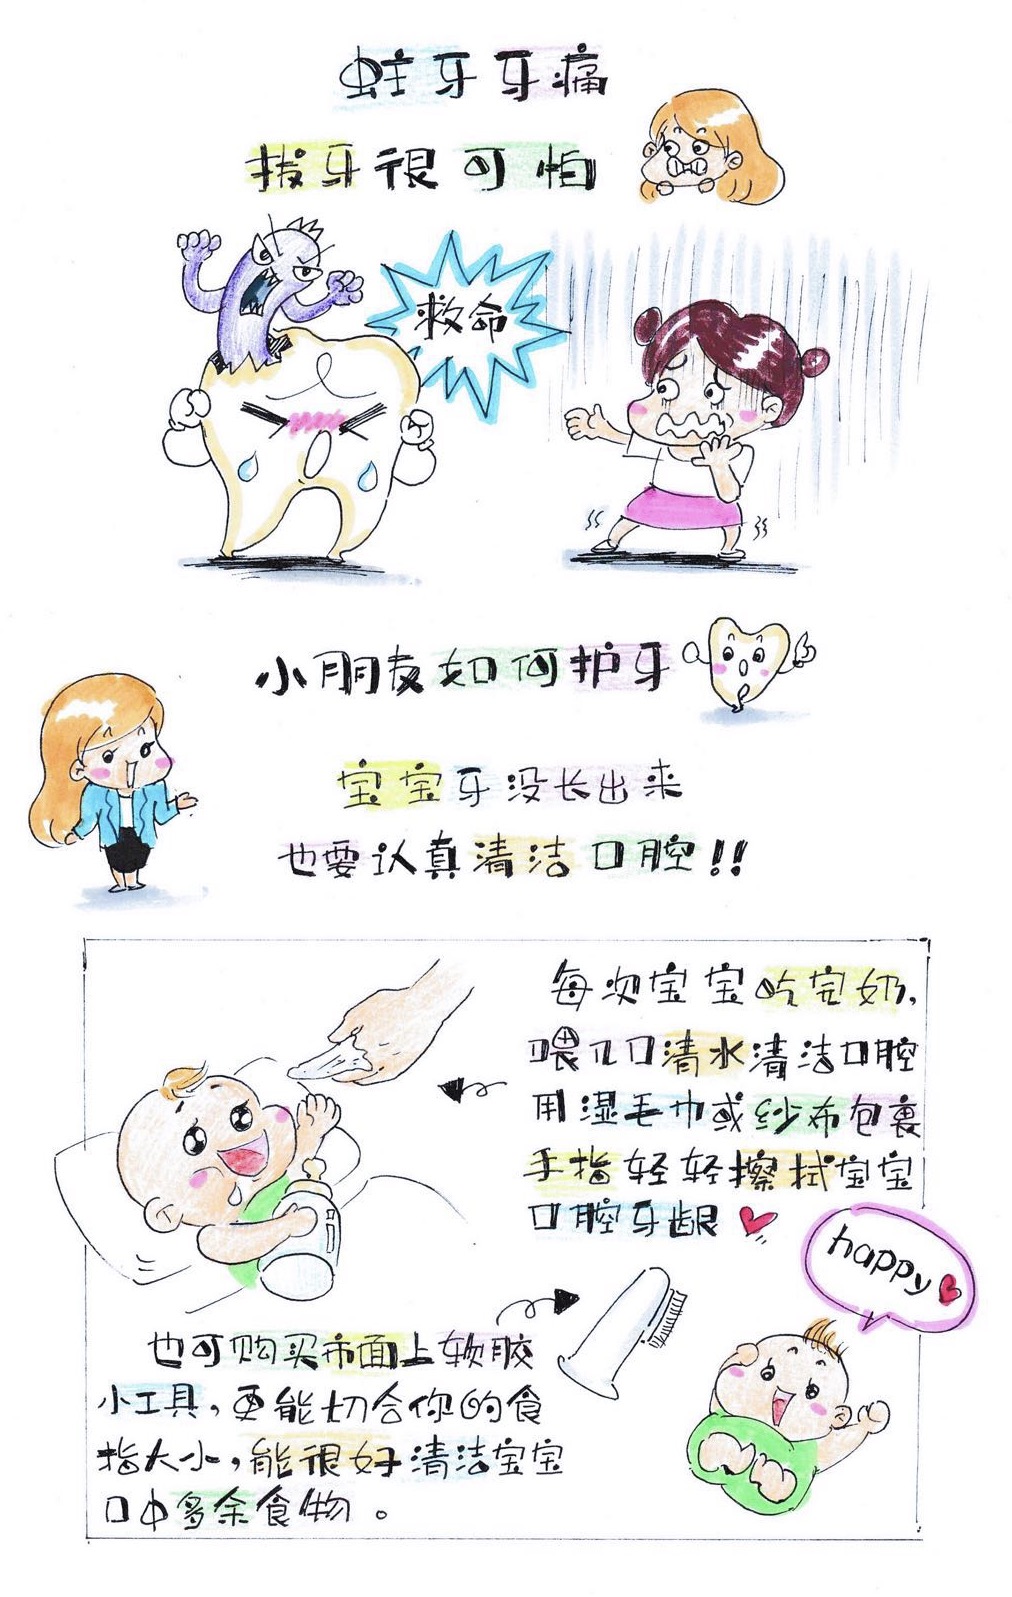 蛀牙牙痛
拔牙很可怕
救命
小朋友如何护牙
宝宝牙没长出来
也要认真清洁口腔!!
每次宝宝吃完奶,
喂几口清水清洁口腔
用湿毛巾或纱布包裹
手指轻轻擦拭宝宝
口腔牙龈
happy
也可购买市面上软胶
小工具,更能切合你的食
指大小,能很好清洁宝宝
口中多余食物。